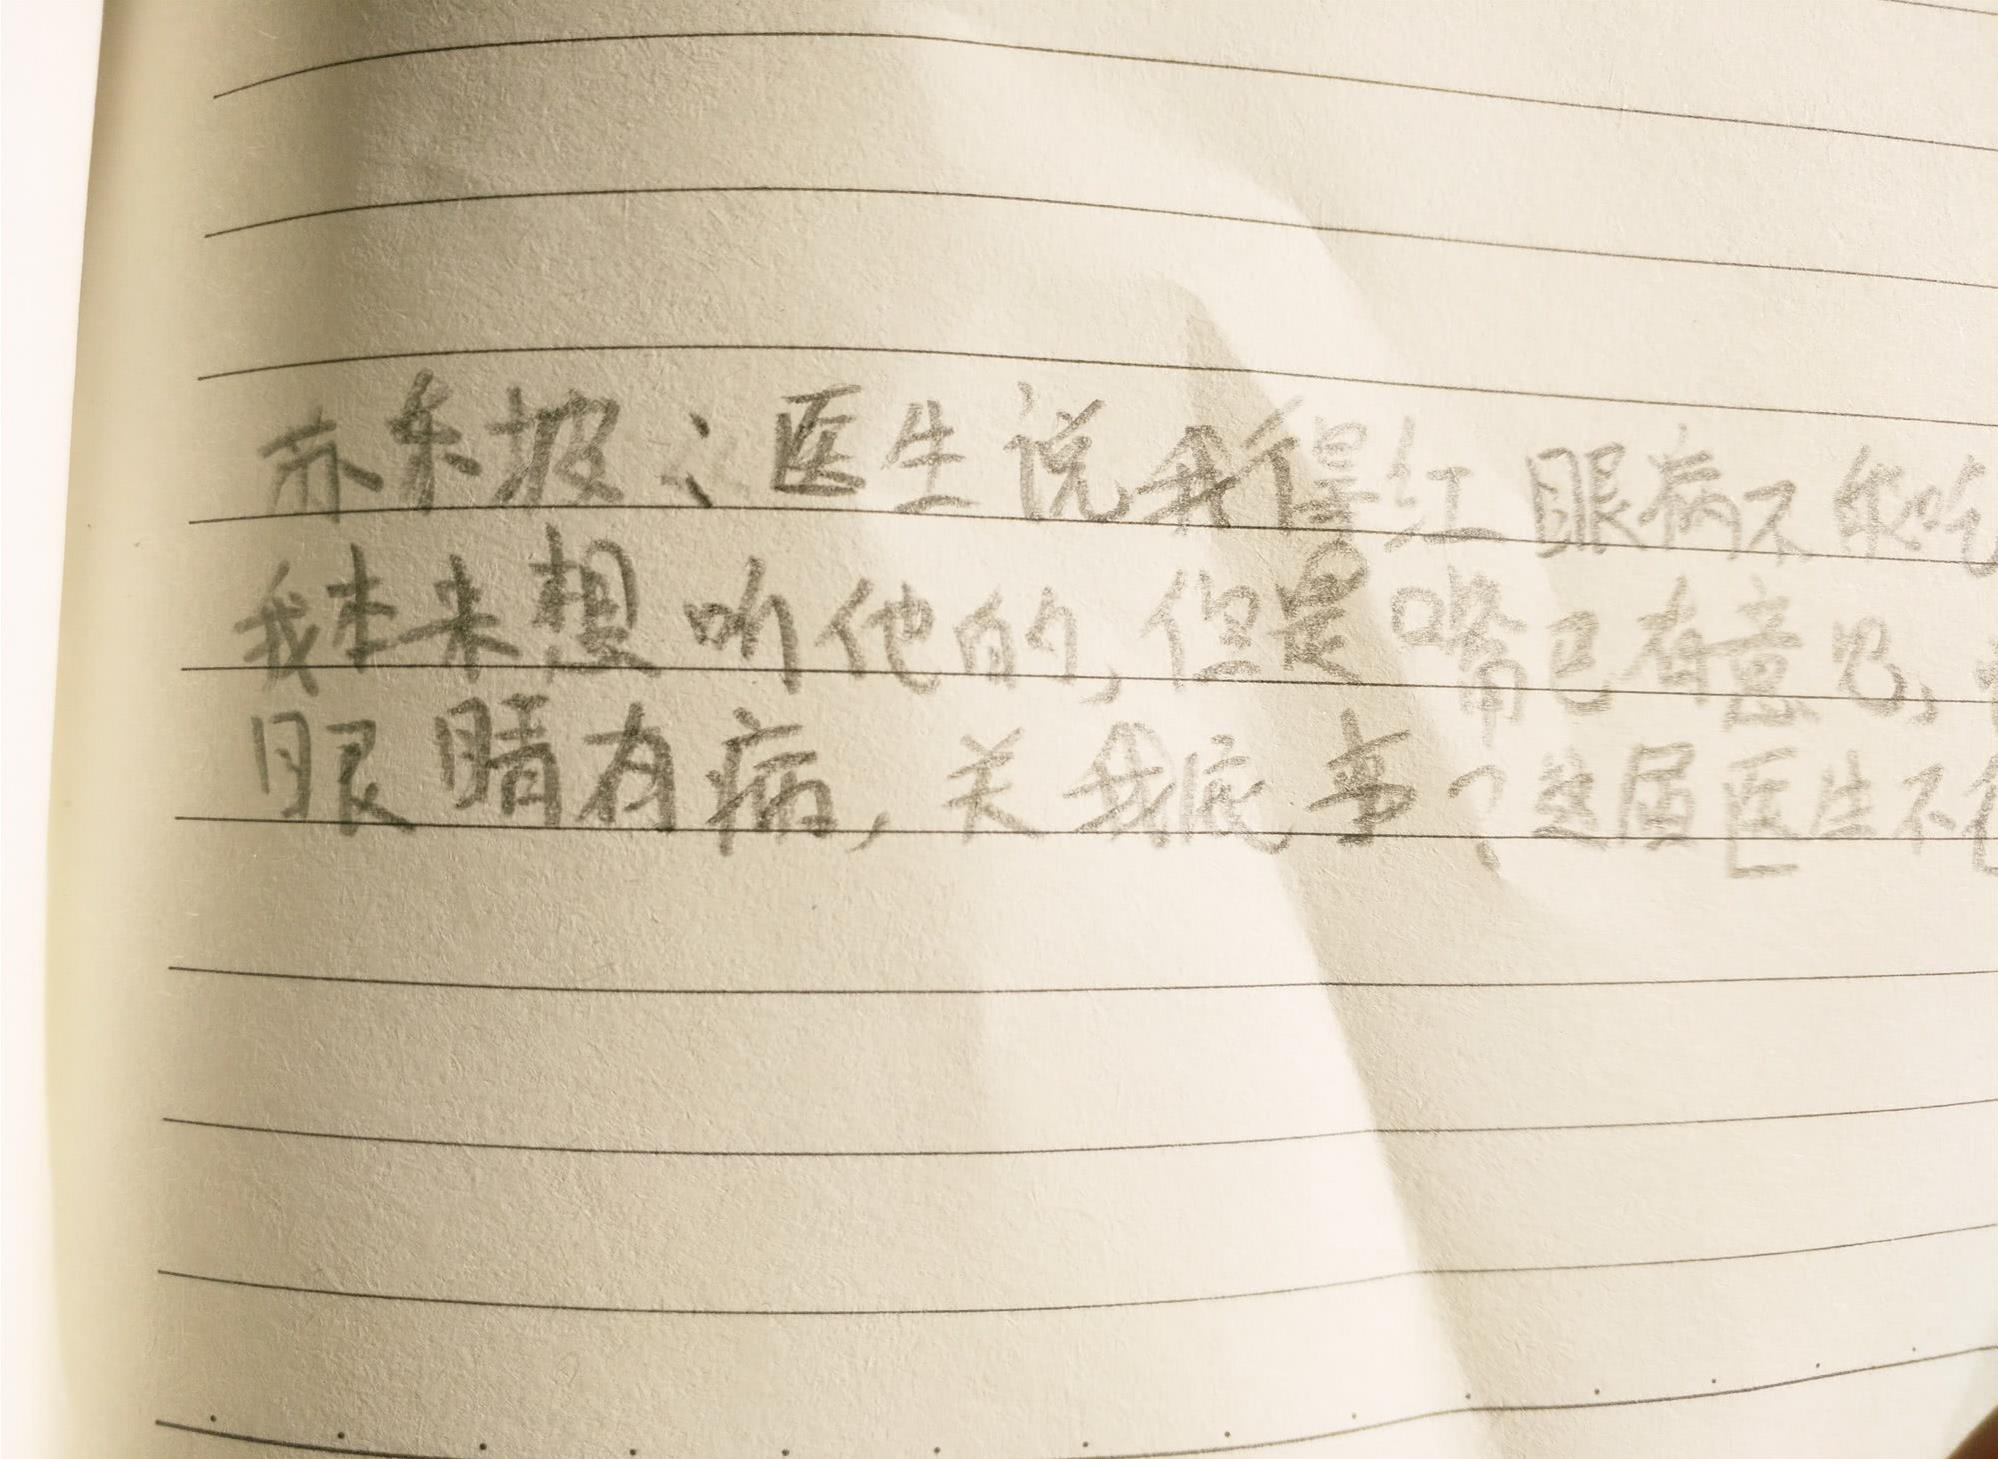 苏东坡：医生说我得红眼病不能吃
我本来想听他的，但是嘴巴有意见，
眼睛有病，关我底事？这届医生不